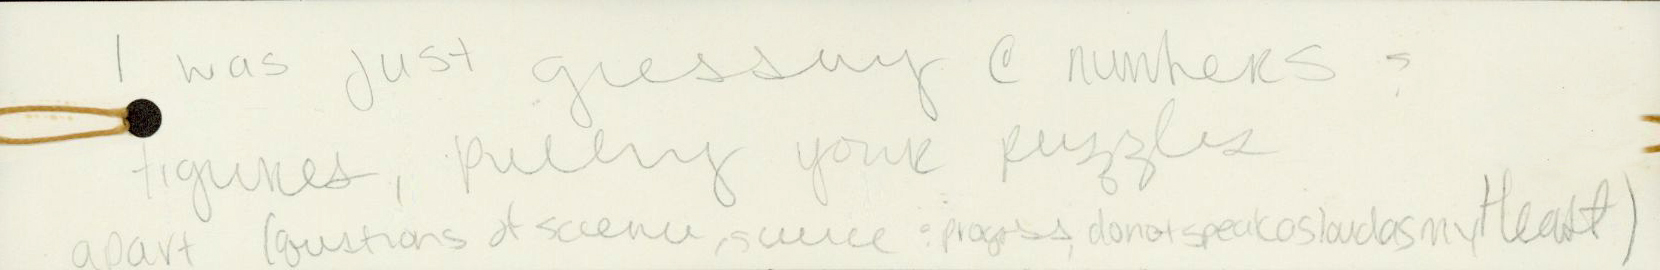 I was just guessing @ numbers &
figures, pulling your puzzles
apart (questions of science, science & progress, do not speak as loud as my Heart)